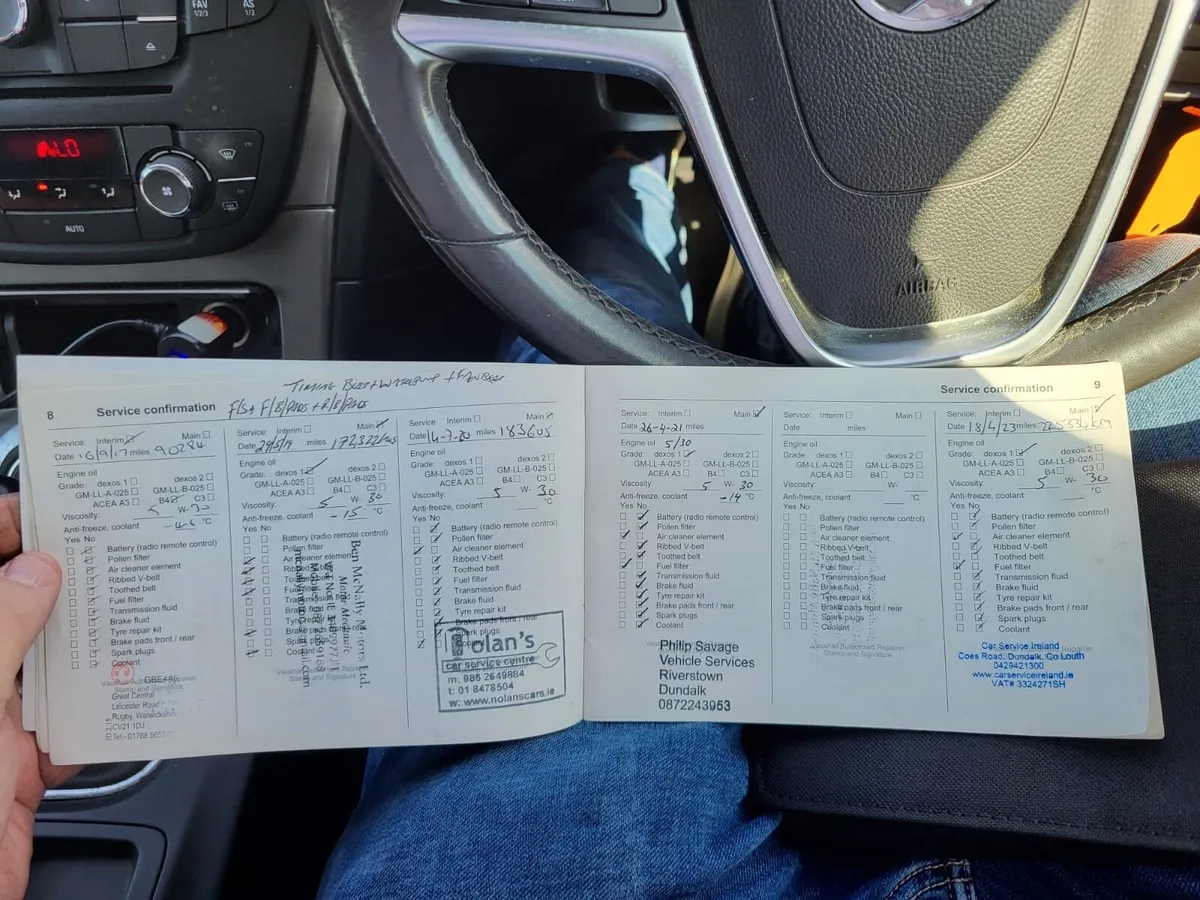 FAV
1/2/3
AS
1/2
LO
AUTO
AIRBAG
TIMING BELT + WATERPUMP + FAN BELT
8
Service confirmation
F/S + F/B/PADS + R/B/PADS
Service: Interim Main
Date 16/9/17 miles 90284
Engine oil
Grade: dexos 1 dexos 2
GM-LL-A-025 GM-LL-B-025
ACEA A3 B4 C3
Viscosity: 5 W- 30
Anti-freeze, coolant °C
Yes No
Battery (radio remote control)
Pollen filter
Air cleaner element
Ribbed V-belt
Toothed belt
Fuel filter
Transmission fluid
Brake fluid
Tyre repair kit
Brake pads front / rear
Spark plugs
Coolant
Stamp and Signature
Great Central
Leicester Road
Rugby, Warwickshire
CV21 1DJ
Interim Main
Date miles
Engine oil
Grade: dexos 1 dexos 2
GM-LL-A-025 GM-LL-B-025
ACEA A3 B4 C3
Viscosity: 5 W- 30
Anti-freeze, coolant -15 °C
Yes No
Battery (radio remote control)
Pollen filter
Air cleaner element
Ben McNally Motors Ltd.
Mobile Mechanic
Service: Interim Main
Date 14-7-20 miles 183605
Engine oil
Grade: dexos 1 dexos 2
GM-LL-A-025 GM-LL-B-025
ACEA A3 B4 C3
Viscosity: 5 W- 30
Anti-freeze, coolant °C
Yes No
Battery (radio remote control)
Pollen filter
Air cleaner element
Ribbed V-belt
Toothed belt
Fuel filter
Transmission fluid
Brake fluid
Tyre repair kit
Brake pads front / rear
Spark plugs
Nolan's
car service centre
m: 086 2649884
t: 01 8478504
w: www.nolanscars.ie
Service confirmation
9
Service: Interim Main
Date 26-4-21 miles
Engine oil 5/30
Grade: dexos 1 dexos 2
GM-LL-A-025 GM-LL-B-025
ACEA A3 B4 C3
Viscosity: 5 W- 30
Anti-freeze, coolant -14 °C
Yes No
Battery (radio remote control)
Pollen filter
Air cleaner element
Ribbed V-belt
Toothed belt
Fuel filter
Transmission fluid
Brake fluid
Tyre repair kit
Brake pads front / rear
Spark plugs
Coolant
Philip Savage
Vehicle Services
Riverstown
Dundalk
0872243953
Service: Interim Main
Date miles
Engine oil
Grade: dexos 1 dexos 2
GM-LL-A-025 GM-LL-B-025
ACEA A3 B4 C3
Viscosity: W-
Anti-freeze, coolant °C
Yes No
Battery (radio remote control)
Pollen filter
Air cleaner element
Ribbed V-belt
Toothed belt
Fuel filter
Transmission fluid
Brake fluid
Tyre repair kit
Brake pads front / rear
Spark plugs
Coolant
Vauxhall Authorised Repairer
Stamp and Signature
Service: Interim Main
Date 18/4/23 miles
Engine oil
Grade: dexos 1 dexos 2
GM-LL-A-025 GM-LL-B-025
ACEA A3 B4 C3
Viscosity: 5 W- 30
Anti-freeze, coolant °C
Yes No
Battery (radio remote control)
Pollen filter
Air cleaner element
Ribbed V-belt
Toothed belt
Fuel filter
Transmission fluid
Brake fluid
Tyre repair kit
Brake pads front / rear
Spark plugs
Coolant
Car Service Ireland
Coes Road, Dundalk, Co Louth
0429421300
www.carserviceireland.ie
VAT# 3324271SH